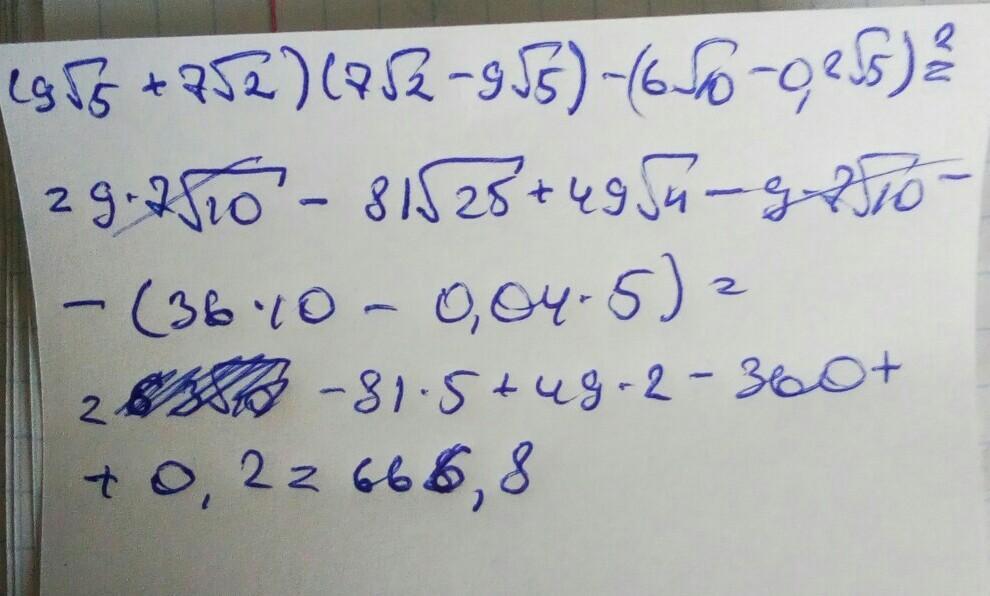 (9√5 + 7√2)(7√2 - 9√5) - (6√10 - 0,2√5)² =
= 9·7√10 - 81√25 + 49√4 - 9·7√10 -
- (36·10 - 0,04·5) =
= - 81·5 + 49·2 - 360 +
+ 0,2 = 666,8